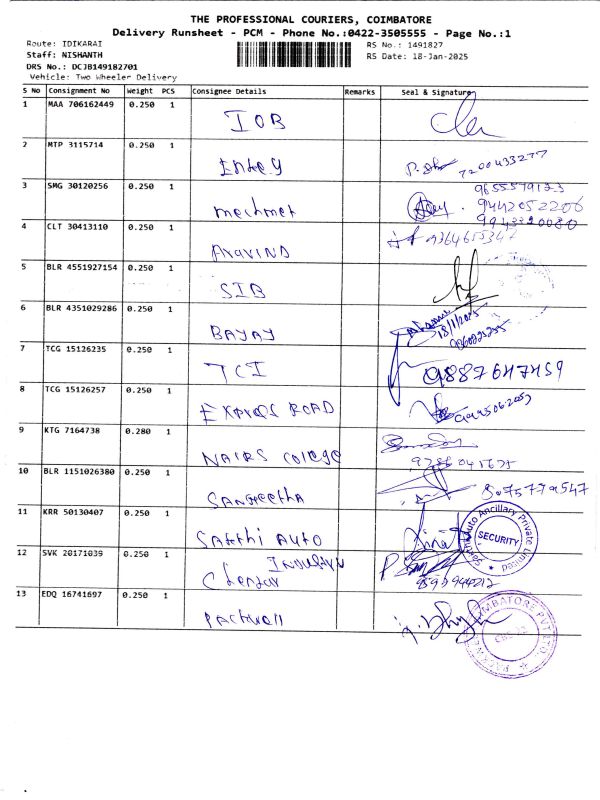 THE PROFESSIONAL COURIERS, COIMBATORE
Delivery Runsheet - PCM - Phone No.:0422-3505555 - Page No.:1
Route: IDIKARAI
RS No.: 1491827
Staff: NISHANTH
RS Date: 18-Jan-2025
DRS No.: DCJB149182701
Vehicle: Two Wheeler Delivery
S No Consignment No Weight PCS Consignee Details Remarks Seal & Signature
1 MAA 706162449 0.250 1 IOB
2 MTP 3115714 0.250 1 7200433277
3 SMG 30120256 0.250 1 mechmet
9442052206
4 CLT 30413110 0.250 1 Aravind
5 BLR 4551927154 0.250 1 SIB
6 BLR 4351029286 0.250 1 BAJAJ 18/1/2025
7 TCG 15126235 0.250 1 TCI 9887647459
8 TCG 15126257 0.250 1 Express ROAD
9 KTG 7164738 0.280 1 NAIRS College
10 BLR 1151026380 0.250 1 Sangeetha
11 KRR 50130407 0.250 1 Sakthi Auto
Sakthi Auto Ancillary Private Limited
SECURITY
12 SVK 20171039 0.250 1
13 EDQ 16741697 0.250 1 Packwell
COIMBATORE PVT LTD